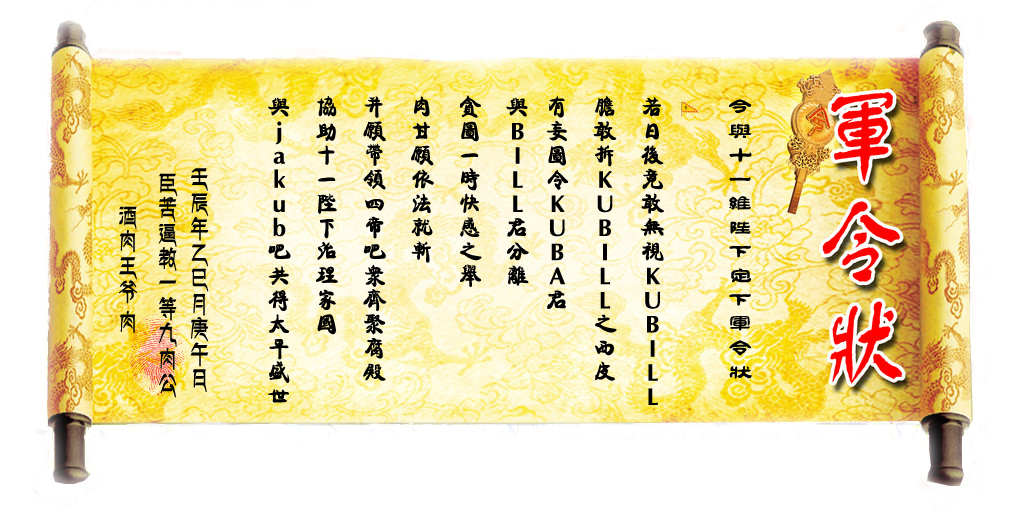 軍令狀
今與十一維陛下定下軍令狀
若日後竟敢無視KUBILL
膽敢折KUBILL之西皮
有妄圖令KUBA君
與BILL君分離
貪圖一時快感之舉
肉甘願依法就斬
并願帶領四帝吧眾齊聚腐殿
協助十一陛下治理家國
與jakub吧共得太平盛世
壬辰年乙巳月庚午日
臣苦逼教一等九肉公
酒肉王爷肉